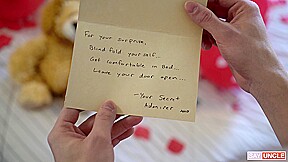 For your surprise,
Blind fold your self..
Get comfortable in Bed...
Leave your door open...
-Your Secret
Admirer xoxo
SAY
UNCLE